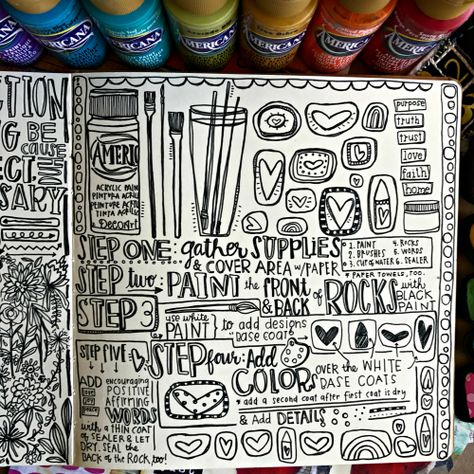 AMERICANA
AMERICANA
AMERICANA
AMERICANA
AMERICANA
AMERICANA
CTION
BE
cause
SARY
AMERIC
ACRYLIC PAINT
PEINTURE ACRYLIC
TINTA ACRILIC
DecoArt
purpose
truth
trust
love
faith
home
STEP ONE: gather SUPPLIES
& COVER AREA W/PAPER
1. PAINT 4. ROCKS
2. BRUSHES 5. WORDS
3. CUP of WATER 6. SEALER
& PAPER TOWELS, TOO.
STEP two: PAINT the FRONT
& BACK of ROCKS with
BLACK
PAINT
STEP 3
use white
PAINT to add designs
base coat
STEP FIVE:
ADD encouraging
POSITIVE
AFFIRMING
WORDS
with a THIN COAT
of SEALER & LET
DRY. SEAL the
BACK of the ROCK, too!
STEP four: Add
COLORS
OVER the WHITE
BASE COATS
+ add a second coat after first coat is dry
& Add DETAILS